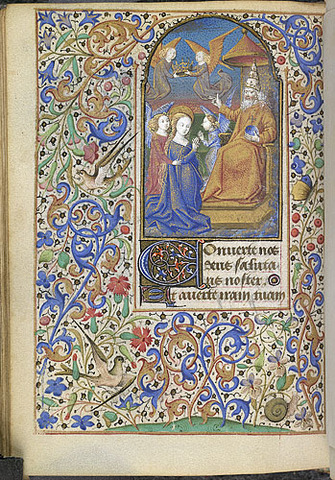 Conuerte nos
deus saluta
ris noster. 
Et auerte iram tuam